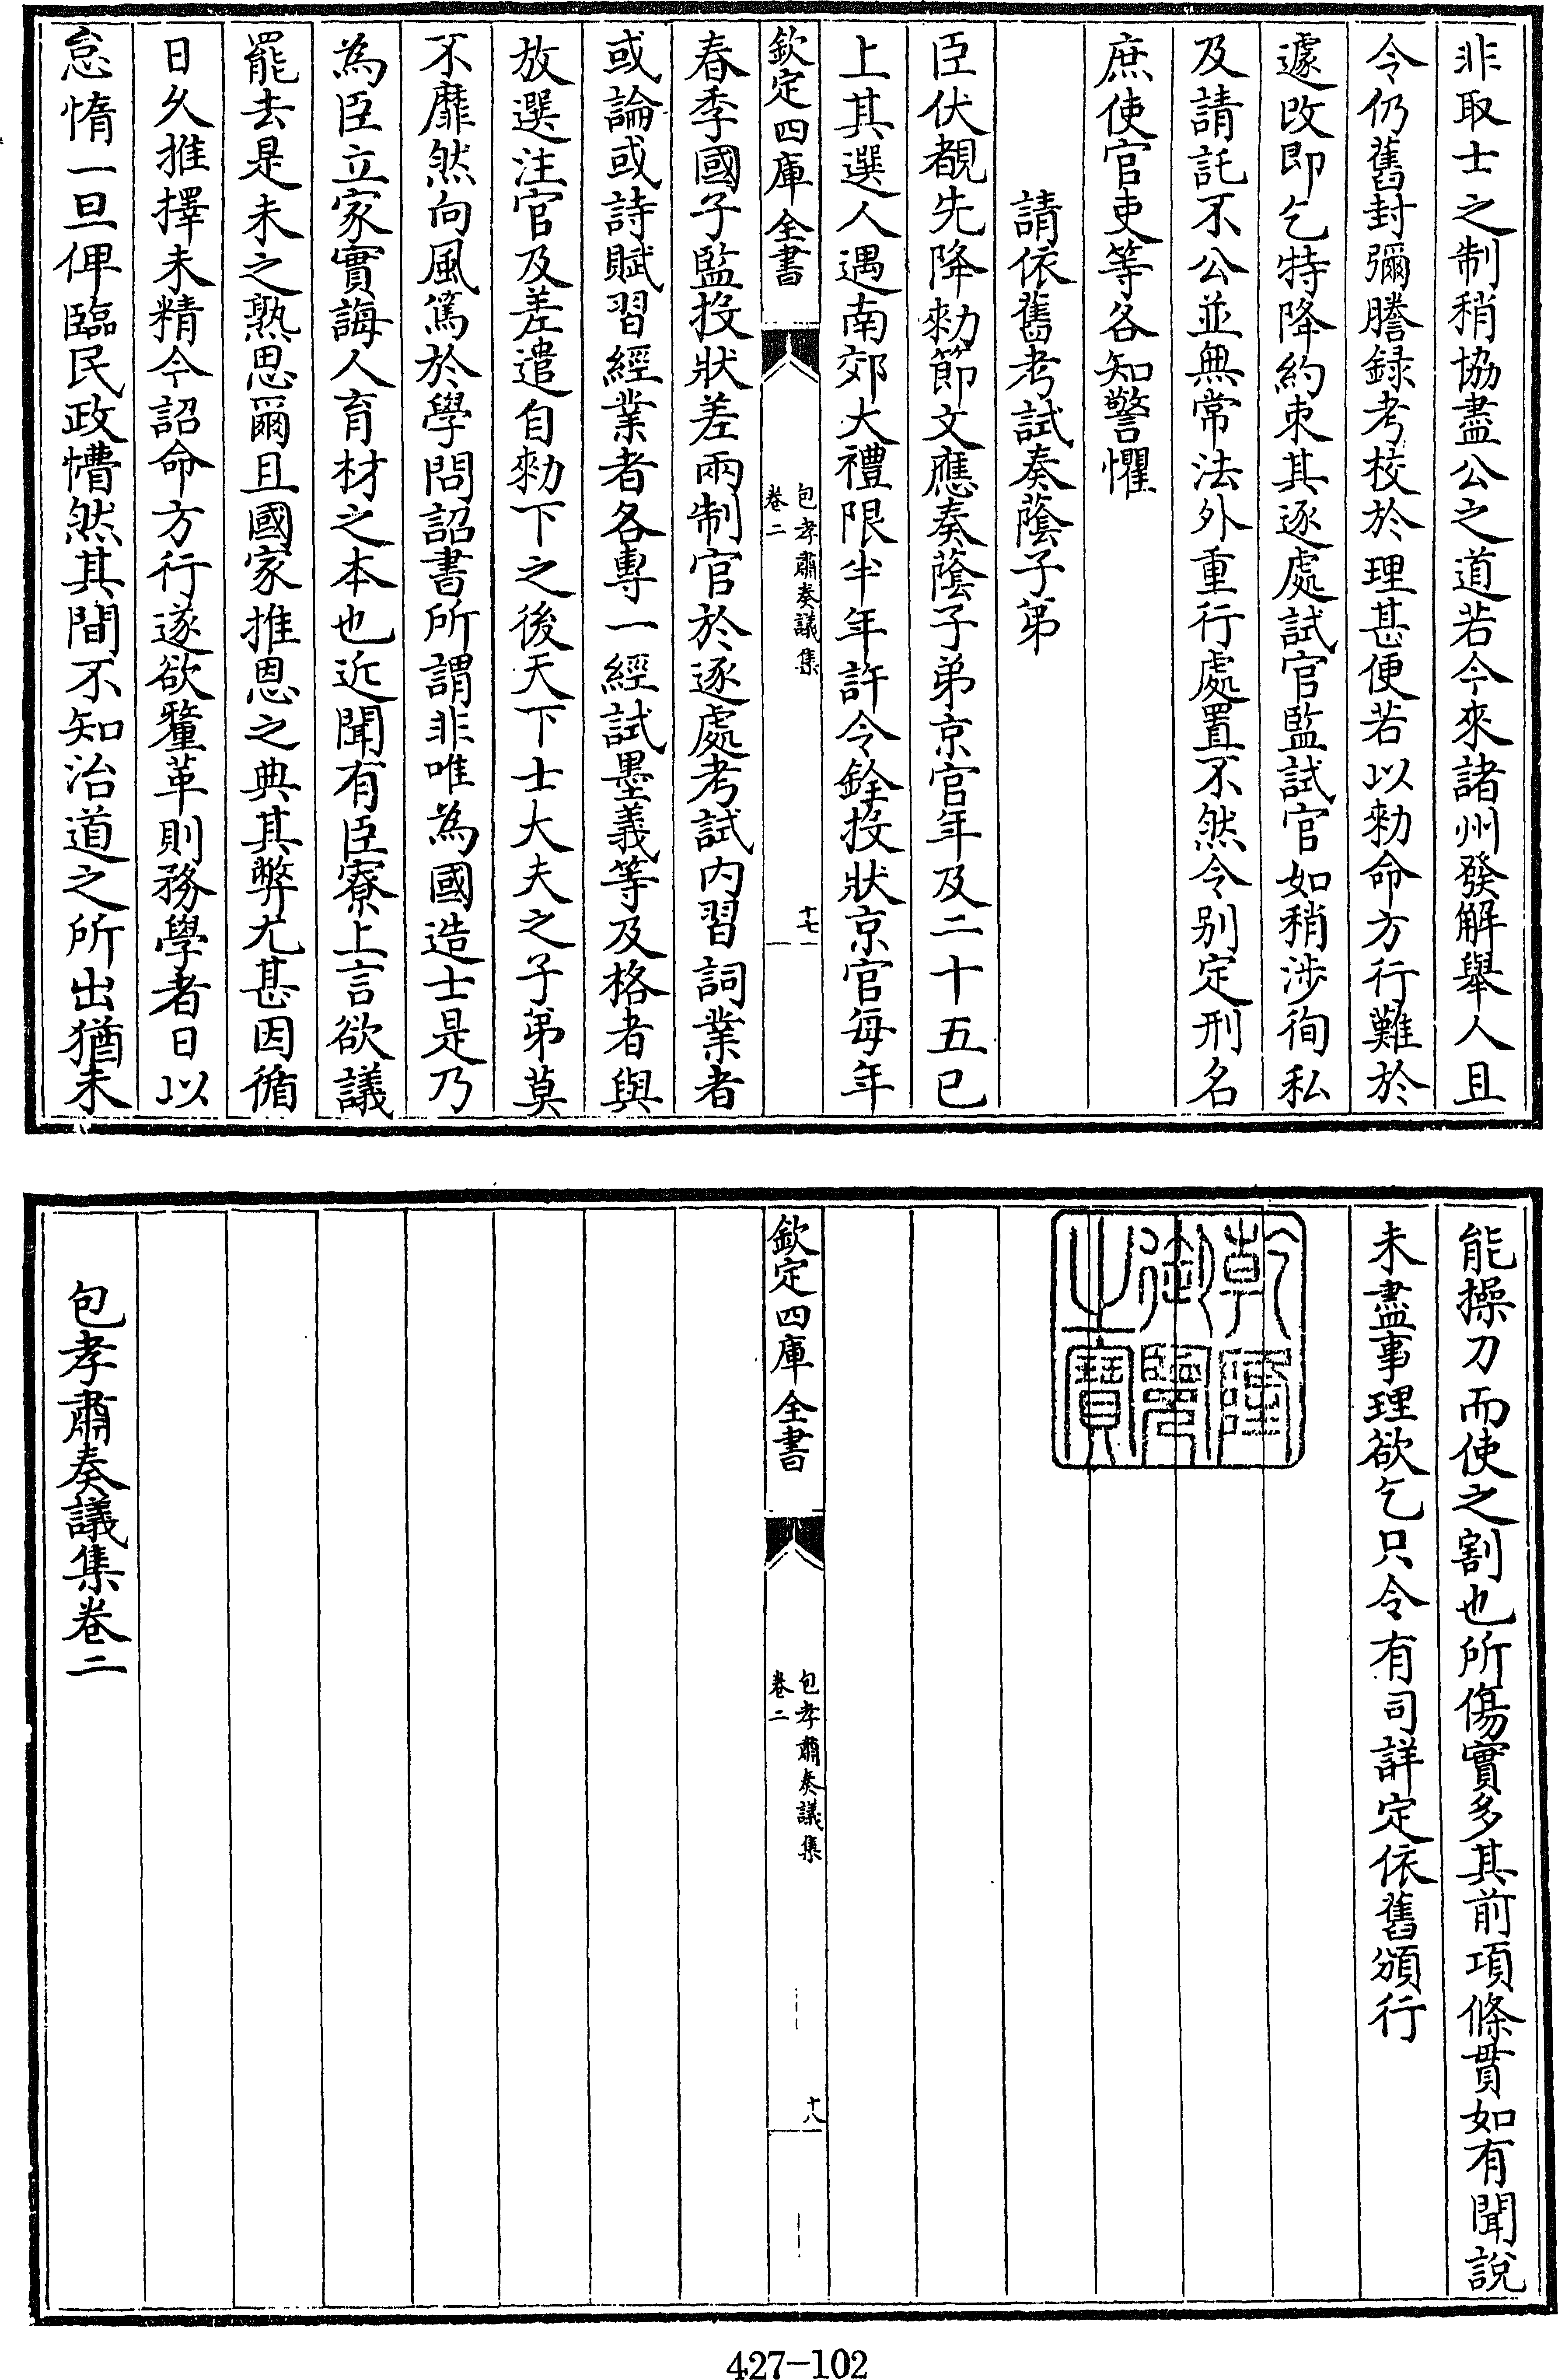 非取士之制稍協盡公之道若今來諸州發解舉人且
令仍舊封彌謄録考校於理甚便若以勑命方行難於
遽改即乞特降約束其逐處試官監試官如稍涉徇私
及請託不公並無常法外重行處置不然令别定刑名
庶使官吏等各知警懼
請依舊考試奏蔭子弟
臣伏覩先降勑節文應奏蔭子弟京官年及二十五已
上其選人遇南郊大禮限半年許令銓投狀京官每年
欽定四庫全書
包孝肅奏議集
卷二
十七
春季國子監投狀差兩制官於逐處考試内習詞業者
或論或詩賦習經業者各專一經試墨義等及格者與
放選注官及差遣自勑下之後天下士大夫之子弟莫
不靡然向風篤於學問詔書所謂非唯為國造士是乃
為臣立家實誨人育材之本也近聞有臣寮上言欲議
罷去是未之熟思爾且國家推恩之典其弊尤甚因循
日久推擇未精今詔命方行遂欲釐革則務學者日以
怠惰一旦俾臨民政懵然其間不知治道之所出猶未
能操刀而使之割也所傷實多其前項條貫如有聞說
未盡事理欲乞只令有司詳定依舊頒行
乾隆御覽之寶
欽定四庫全書
包孝肅奏議集
卷二
十八
包孝肅奏議集卷二
427-102